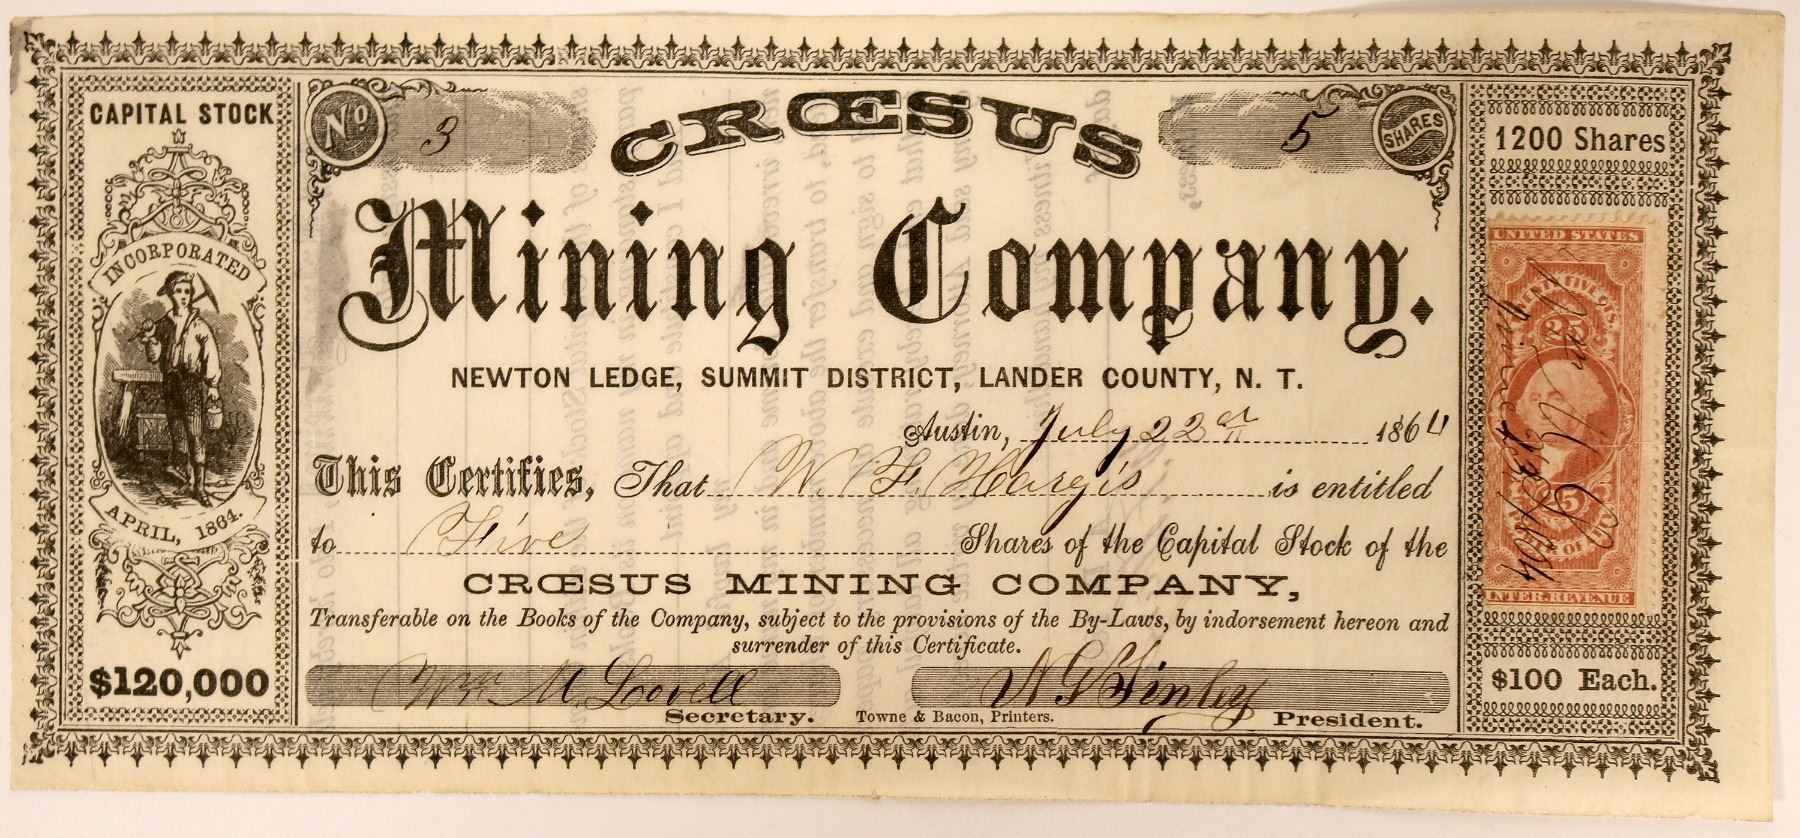 CAPITAL STOCK
INCORPORATED
APRIL, 1864.
$120,000
No. 3
5 SHARES
CRŒSUS
Mining Company.
NEWTON LEDGE, SUMMIT DISTRICT, LANDER COUNTY, N. T.
Austin, July 22 1864
This Certifies, That W. F. Hargis is entitled
to Five Shares of the Capital Stock of the
CRŒSUS MINING COMPANY,
Transferable on the Books of the Company, subject to the provisions of the By-Laws, by indorsement hereon and
surrender of this Certificate.
Wm M. Lovell
Secretary.
Towne & Bacon, Printers.
President.
1200 Shares
UNITED STATES
TWENTY FIVE CTS.
25
INTER. REVENUE
$100 Each.